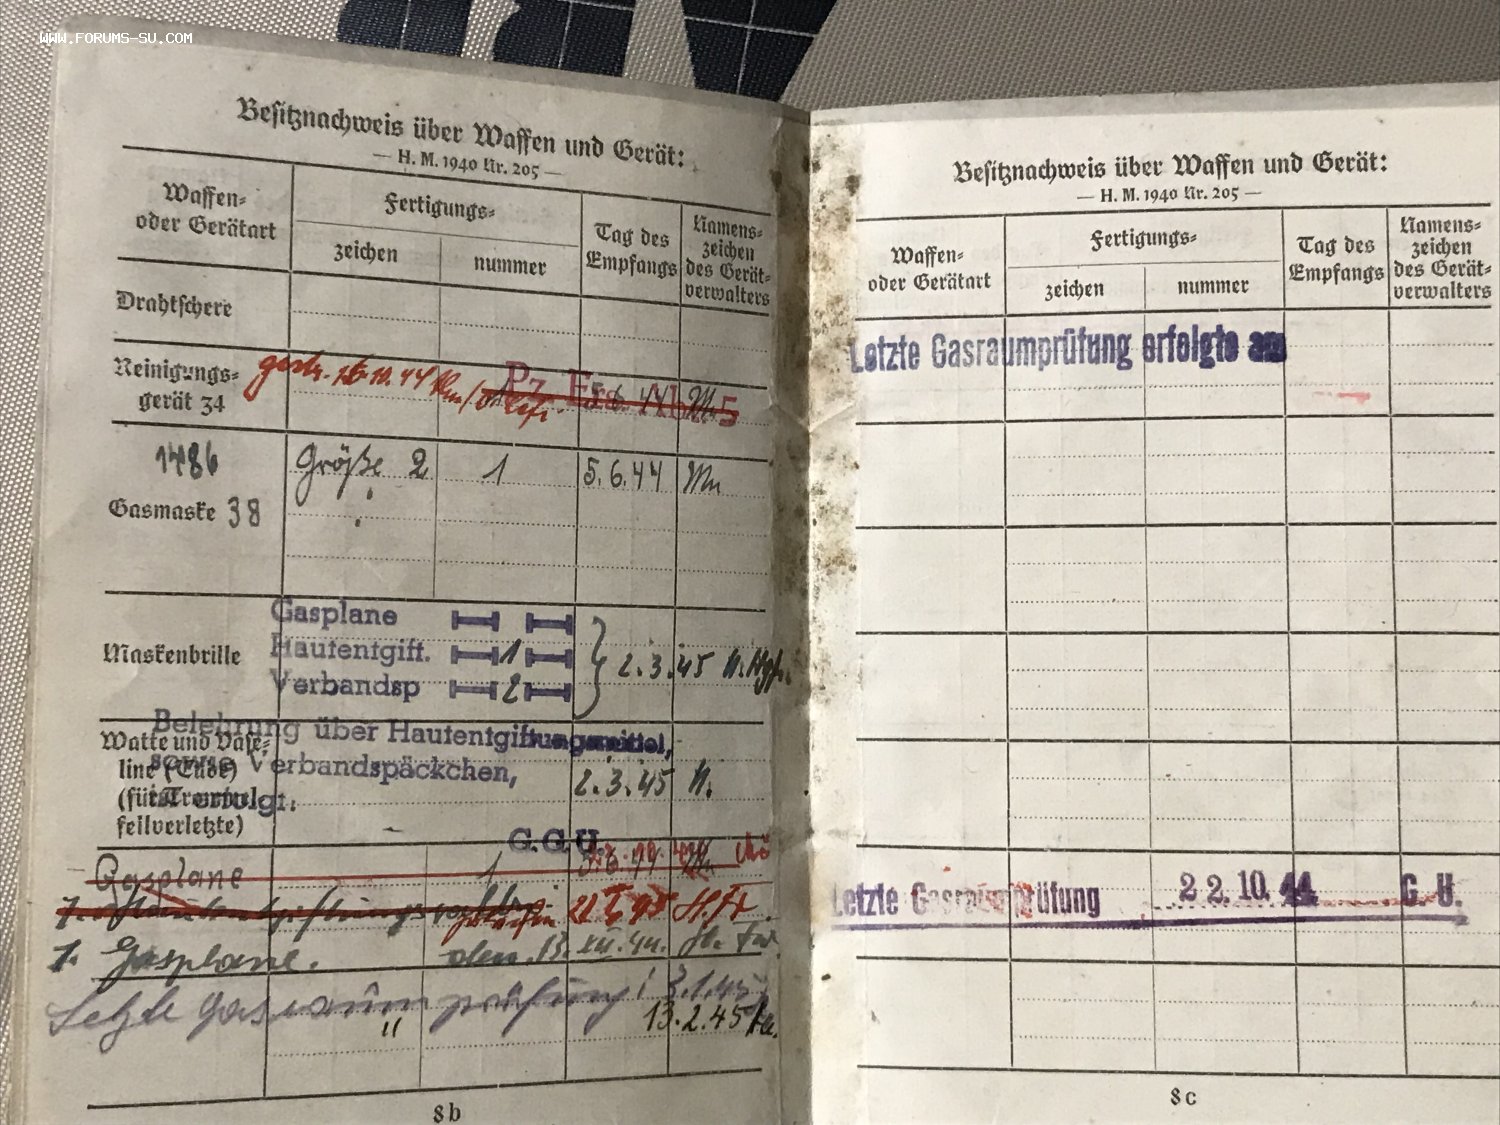 WWW.FORUMS-SU.COM
Besitznachweis über Waffen und Gerät:
— H. M. 1940 Nr. 205 —
Waffen-
oder Gerätart
Fertigungs-
zeichen
nummer
Tag des
Empfangs
Namens-
zeichen
des Gerät-
verwalters
Drahtschere
Reinigungs-
gerät 34
gestr.
5.6.44
1486
Gasmaske 38
Größe 2
1
5.6.44
Gasplane
Hautentgift. 1
Verbandsp 2
2.3.45
Maskenbrille
Belehrung über Hautentgiftungsmittel,
sowie Verbandspäckchen,
ist erfolgt.
Watte und Vase-
line (Tube)
(für Trommel-
fellverletzte)
2.3.45 H.
G.G.U.
Gasplane 1
1. Gasplane.
den 13. XII. 44.
Letzte Gasraumprüfung! 3.1.45
" 13.2.45
8b
Besitznachweis über Waffen und Gerät:
— H. M. 1940 Nr. 205 —
Waffen-
oder Gerätart
Fertigungs-
zeichen
nummer
Tag des
Empfangs
Namens-
zeichen
des Gerät-
verwalters
Letzte Gasraumprüfung erfolgte am
Letzte Gasraumprüfung 22.10.44 G.U.
8c